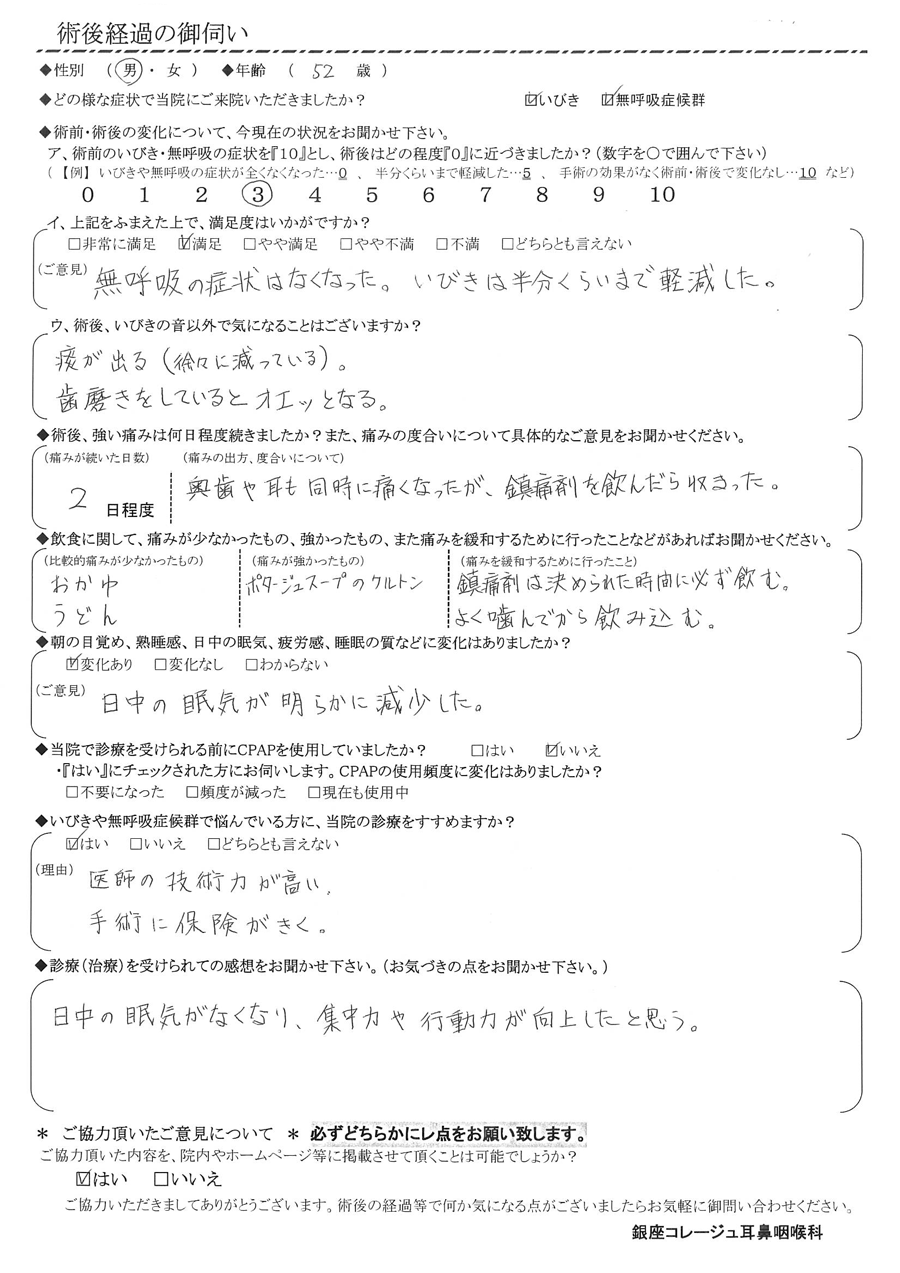 術後経過の御伺い
◆性別 （ 男 ・ 女 ） ◆年齢 （ 52 歳 ）
◆どの様な症状で当院にご来院いただきましたか？ ☑いびき ☑無呼吸症候群
◆術前・術後の変化について、今現在の状況をお聞かせ下さい。
ア、術前のいびき・無呼吸の症状を『10』とし、術後はどの程度『0』に近づきましたか？（数字を〇で囲んで下さい）
（【例】 いびきや無呼吸の症状が全くなくなった…0 、 半分くらいまで軽減した…5 、 手術の効果がなく術前・術後で変化なし…10 など）
0 1 2 3 4 5 6 7 8 9 10
イ、上記をふまえた上で、満足度はいかがですか？
□非常に満足 ☑満足 □やや満足 □やや不満 □不満 □どちらとも言えない
（ご意見） 無呼吸の症状はなくなった。いびきは半分くらいまで軽減した。
ウ、術後、いびきの音以外で気になることはございますか？
痰が出る（徐々に減っている）。
歯磨きをしているとオエッとなる。
◆術後、強い痛みは何日程度続きましたか？また、痛みの度合いについて具体的なご意見をお聞かせください。
（痛みが続いた日数） （痛みの出方、度合いについて）
2 日程度 奥歯や耳も同時に痛くなったが、鎮痛剤を飲んだら収まった。
◆飲食に関して、痛みが少なかったもの、強かったもの、また痛みを緩和するために行ったことなどがあればお聞かせください。
（比較的痛みが少なかったもの） （痛みが強かったもの） （痛みを緩和するために行ったこと）
おかゆ ポタージュスープのクルトン 鎮痛剤は決められた時間に必ず飲む。
うどん よく噛んでから飲み込む。
◆朝の目覚め、熟睡感、日中の眠気、疲労感、睡眠の質などに変化はありましたか？
☑変化あり □変化なし □わからない
（ご意見） 日中の眠気が明らかに減少した。
◆当院で診療を受けられる前にCPAPを使用していましたか？ □はい ☑いいえ
・『はい』にチェックされた方にお伺いします。CPAPの使用頻度に変化はありましたか？
□不要になった □頻度が減った □現在も使用中
◆いびきや無呼吸症候群で悩んでいる方に、当院の診療をすすめますか？
☑はい □いいえ □どちらとも言えない
（理由） 医師の技術力が高い、
手術に保険がきく。
◆診療（治療）を受けられての感想をお聞かせ下さい。（お気づきの点をお聞かせ下さい。）
日中の眠気がなくなり、集中力や行動力が向上したと思う。
＊ ご協力頂いたご意見について ＊ 必ずどちらかにレ点をお願い致します。
ご協力頂いた内容を、院内やホームページ等に掲載させて頂くことは可能でしょうか？
☑はい □いいえ
ご協力いただきましてありがとうございます。術後の経過等で何か気になる点がございましたらお気軽に御問い合わせください。
銀座コレージュ耳鼻咽喉科